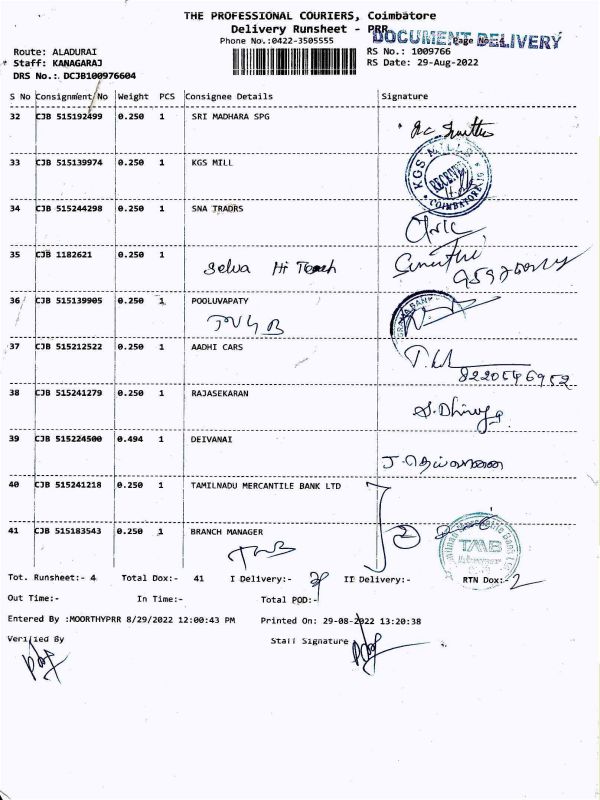 THE PROFESSIONAL COURIERS, Coimbatore
Delivery Runsheet - PRR
DOCUMENT DELIVERY
Phone No.:0422-3505555
Page No.:4
Route: ALADURAI
RS No.: 1009766
Staff: KANAGARAJ
RS Date: 29-Aug-2022
DRS No.: DCJB100976604
S No Consignment No Weight PCS Consignee Details Signature
32 CJB 515192499 0.250 1 SRI MADHARA SPG
33 CJB 515139974 0.250 1 KGS MILL
KGS MILLS RECEIVED COIMBATORE
34 CJB 515244298 0.250 1 SNA TRADRS
35 CJB 1182621 0.250 1
Selva Hi Teach
36 CJB 515139905 0.250 1 POOLUVAPATY
37 CJB 515212522 0.250 1 AADHI CARS
8220546952
38 CJB 515241279 0.250 1 RAJASEKARAN
39 CJB 515224500 0.494 1 DEIVANAI
40 CJB 515241218 0.250 1 TAMILNADU MERCANTILE BANK LTD
41 CJB 515183543 0.250 1 BRANCH MANAGER
2
TMB
TMB
Tot. Runsheet:- 4 Total Dox:- 41 I Delivery:- II Delivery:- RTN Dox:- 2
Out Time:- In Time:- Total POD:-
Entered By :MOORTHYPRR 8/29/2022 12:00:43 PM Printed On: 29-08-2022 13:20:38
Verified By Staff Signature